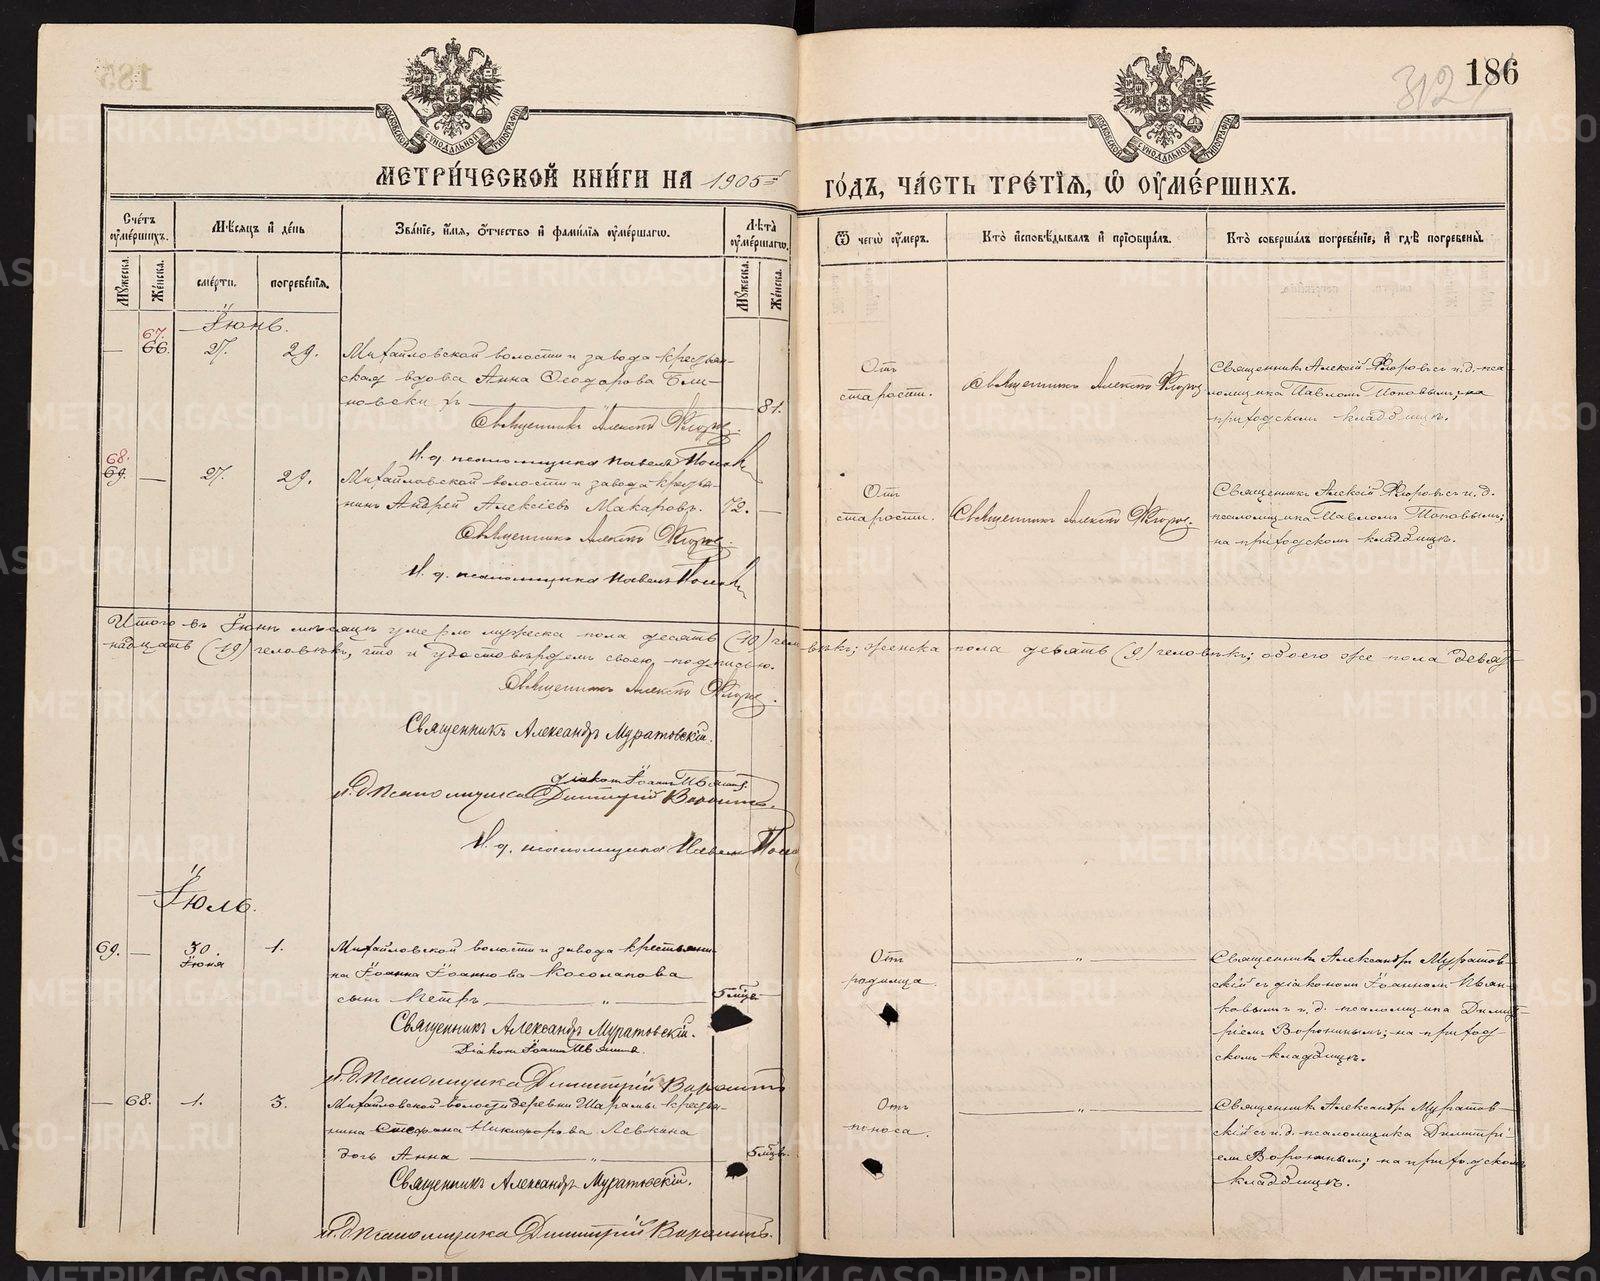 186
312
МЕТРИ́ЧЕСКОЙ КНИ́ГИ НА 1905й
ГО́ДЪ, ЧА́СТЬ ТРЕ́ТІѦ, Ѡ ОУМЕ́РШИХЪ.
Сче́тъ оуме́ршихъ.
Мѣсѧцъ и де́нь
Зва́ніе, и́мѧ, о́тчество и фами́лїѧ оуме́ршагѡ.
Лѣ́та оуме́ршагѡ.
Ѿ чегѡ̀ оу́меръ.
Кто̀ исповѣ́дывалъ и прїѡбща́лъ.
Кто̀ соверша́лъ погребе́нїе, и гдѣ̀ погребены̀.
Му́жеска.
Же́нска.
сме́рти.
погребе́нїѧ.
Му́жеска.
Же́нска.
Іюнь.
67.
— 66. 27. 29. Михайловской волости и завода крестьян-
ская вдова Анна Ѳеодорова Бли-
новскихъ 81.
Священникъ Алексѣй Флоровъ
И. д. псаломщика Павелъ Поповъ
Отъ
старости.
Священникъ Алексѣй Флоровъ
Священникъ Алексій Флоровъ съ и. д. пса-
ломщика Павломъ Поповымъ; на
приходскомъ кладбищѣ.
68.
69. — 27. 29. Михайловской волости и завода крестья-
нинъ Андрей Алексіевъ Макаровъ. 72. —
Священникъ Алексѣй Флоровъ
И. д. псаломщика Павелъ Поповъ
Отъ
старости.
Священникъ Алексѣй Флоровъ.
Священникъ Алексій Флоровъ съ и. д.
псаломщика Павломъ Поповымъ;
на приходскомъ кладбищѣ.
Итого въ Іюнѣ мѣсяцѣ умерло мужеска пола десять (10) человѣкъ; женска пола девять (9) человѣкъ; обоего же пола девят-
надцать (19) человѣкъ, что и удостовѣряемъ своею подписью.
Священникъ Алексѣй Флоровъ.
Священникъ Александръ Муратовскій.
Діаконъ Іоаннъ Иванковъ
И. д. псаломщика Димитрій Воронинъ.
И. д. псаломщика Павелъ Поповъ
Іюль.
69. — 30. Іюня 1. Михайловской волости и завода крестьяни-
на Іоанна Іоаннова Косолапова
сынъ Петръ. " 5 мцъ
Священникъ Александръ Муратовскій.
Діаконъ Іоаннъ Иванковъ.
И. д. псаломщика Димитрій Воронинъ
Отъ
родимца.
"
Священникъ Александръ Муратов-
скій съ діакономъ Іоанномъ Иван-
ковымъ и и. д. псаломщика Димит-
ріемъ Воронинымъ; на приход-
скомъ кладбищѣ.
— 68. 1. 3. Михайловской волости деревни Шарамы крестья-
нина Стефана Никифорова Левкина
дочь Анна " 5 мцъ.
Священникъ Александръ Муратовскій.
И. д. псаломщика Димитрій Воронинъ.
Отъ
поноса.
"
Священникъ Александръ Муратов-
скій съ и. д. псаломщика Димитрі-
емъ Воронинымъ; на приходскомъ
кладбищѣ.
METRIKI.GASO-URAL.RU